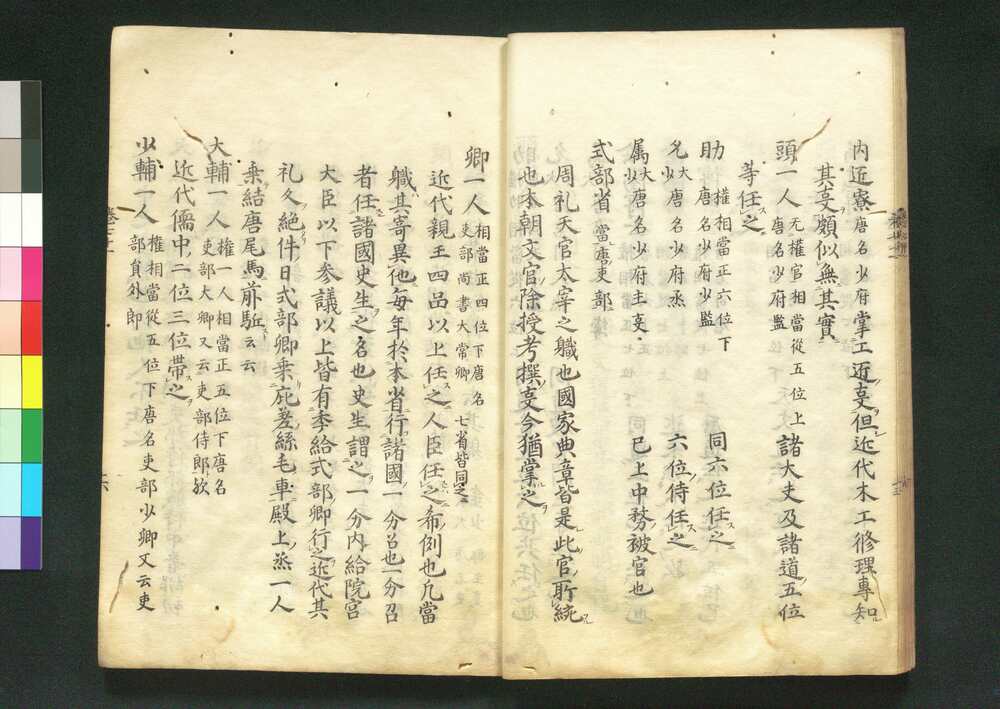 内近寮唐名少府掌工近事但近代木工修理專知
其事頗似無其實
頭一人无權官相當從五位上唐名少府監諸大夫及諸道五位
等任之
助權相當正六位下唐名少府少監同六位任之
允大少唐名少府丞六位侍任之
属大少唐名少府主事已上中務被官也
式部省當唐吏部
周礼天官太宰之職也國家典章皆是此官所統
也本朝文官除授考撰事今猶掌之
卿一人相當正四位下唐名吏部尚書大常卿七省皆同之
近代親王四品以上任之人臣任之希例也凡當
職其寄異他每年於本省行諸國一分召也一分召
者任諸國史生之名也史生謂之一分内給院宮
大臣以下参議以上皆有季給式部卿行之近代其
礼久絶件日式部卿乗庇差絲毛車殿上丞一人
乗結唐尾馬前駈云云
大輔一人權一人相當正五位下唐名吏部大卿又云吏部侍郎歟
近代儒中二位三位帯之
少輔一人權相當從五位下唐名吏部少卿又云吏部員外郎